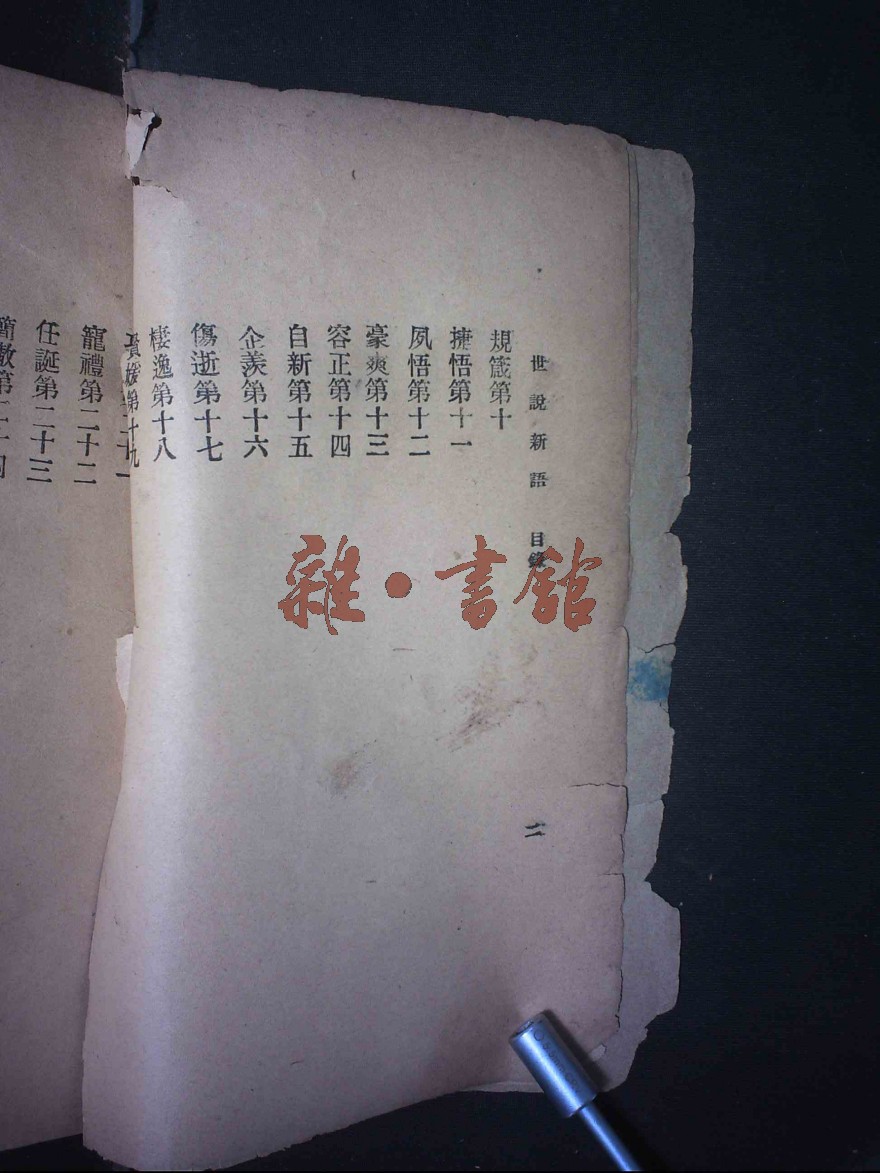 世說新語 目錄
二
規箴第十
捷悟第十一
夙悟第十二
豪爽第十三
容正第十四
自新第十五
企羨第十六
傷逝第十七
棲逸第十八
賢媛第十九
寵禮第二十二
任誕第二十三
簡傲第二十四
雜·書館